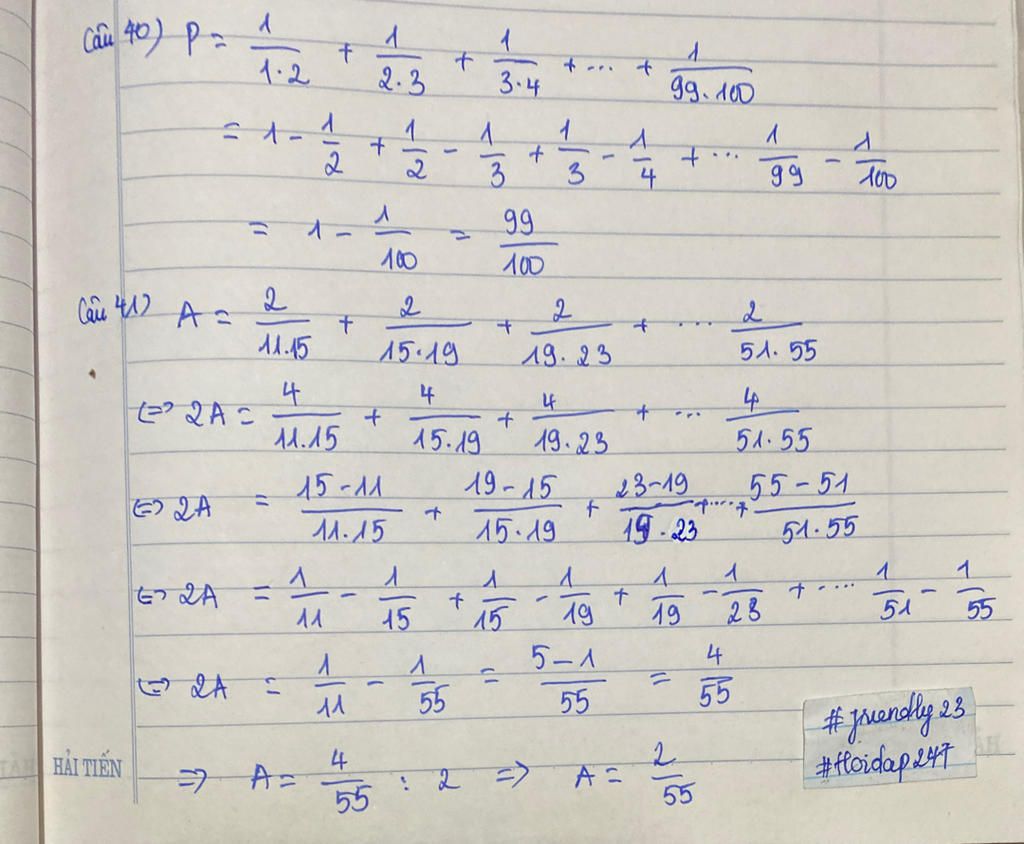 Câu 40) P = 1/1·2 + 1/2·3 + 1/3·4 + ... + 1/99·100
= 1 - 1/2 + 1/2 - 1/3 + 1/3 - 1/4 + ... 1/99 - 1/100
= 1 - 1/100 = 99/100
Câu 41) A = 2/11.15 + 2/15·19 + 2/19·23 + ... 2/51·55
⇔ 2A = 4/11.15 + 4/15.19 + 4/19.23 + ... 4/51.55
⇔ 2A = 15-11/11.15 + 19-15/15·19 + 23-19/19·23 + .... + 55-51/51·55
⇔ 2A = 1/11 - 1/15 + 1/15 - 1/19 + 1/19 - 1/23 + .... 1/51 - 1/55
⇔ 2A = 1/11 - 1/55 = 5-1/55 = 4/55
#friendly23
HẢI TIẾN ⇒ A = 4/55 : 2 ⇒ A = 2/55
#Hoidap247